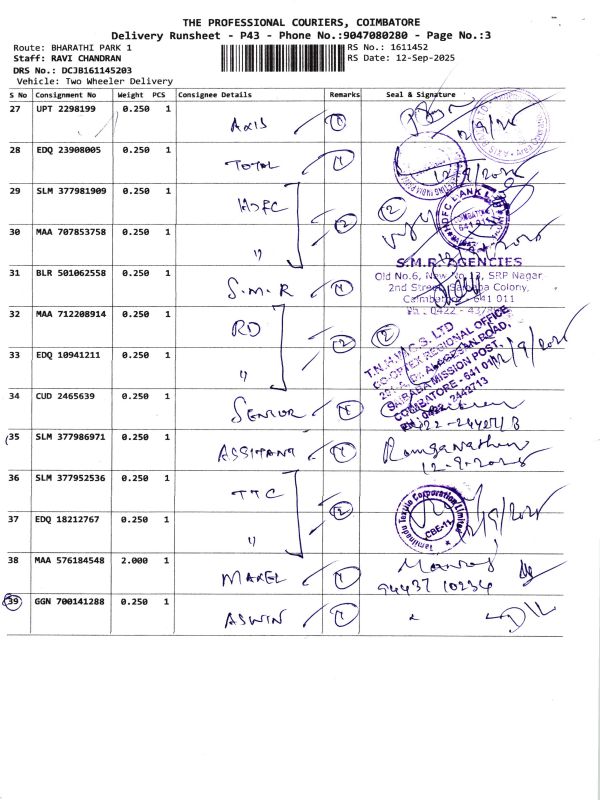 THE PROFESSIONAL COURIERS, COIMBATORE
Delivery Runsheet - P43 - Phone No.:9047080280 - Page No.:3
Route: BHARATHI PARK 1 RS No.: 1611452
Staff: RAVI CHANDRAN RS Date: 12-Sep-2025
DRS No.: DCJB161145203
Vehicle: Two Wheeler Delivery
S No Consignment No Weight PCS Consignee Details Remarks Seal & Signature
27 UPT 2298199 0.250 1 AXIS 1 12/9/25
28 EDQ 23908005 0.250 1 TOTAL 1
29 SLM 377981909 0.250 1 HDFC 2 2
HDFC BANK LTD
COIMBATORE
641 011
30 MAA 707853758 0.250 1 "
31 BLR 501062558 0.250 1 S.M.R 1
S.M.R AGENCIES
Old No.6, New No.13, SRP Nagar,
2nd Street, Saibaba Colony,
Coimbatore - 641 011
Ph.: 0422 -
32 MAA 712208914 0.250 1 RD 2 2
33 EDQ 10941211 0.250 1 " 12/9/2025
CO-OPTEX REGIONAL OFFICE
SAIBABA MISSION POST,
COIMBATORE - 641 011
PH: 0422 - 2442713
34 CUD 2465639 0.250 1 SENIOR 1
35 SLM 377986971 0.250 1 ASSITANT 1 Ramganathan
12-9-2025
36 SLM 377952536 0.250 1 TTC 2
Tamilnadu Textile Corporation Limited
CBE-11
37 EDQ 18212767 0.250 1 " 12/9/2025
38 MAA 576184548 2.000 1 MAREL 1
94437 10234
39 GGN 700141288 0.250 1 ASWIN 1 "